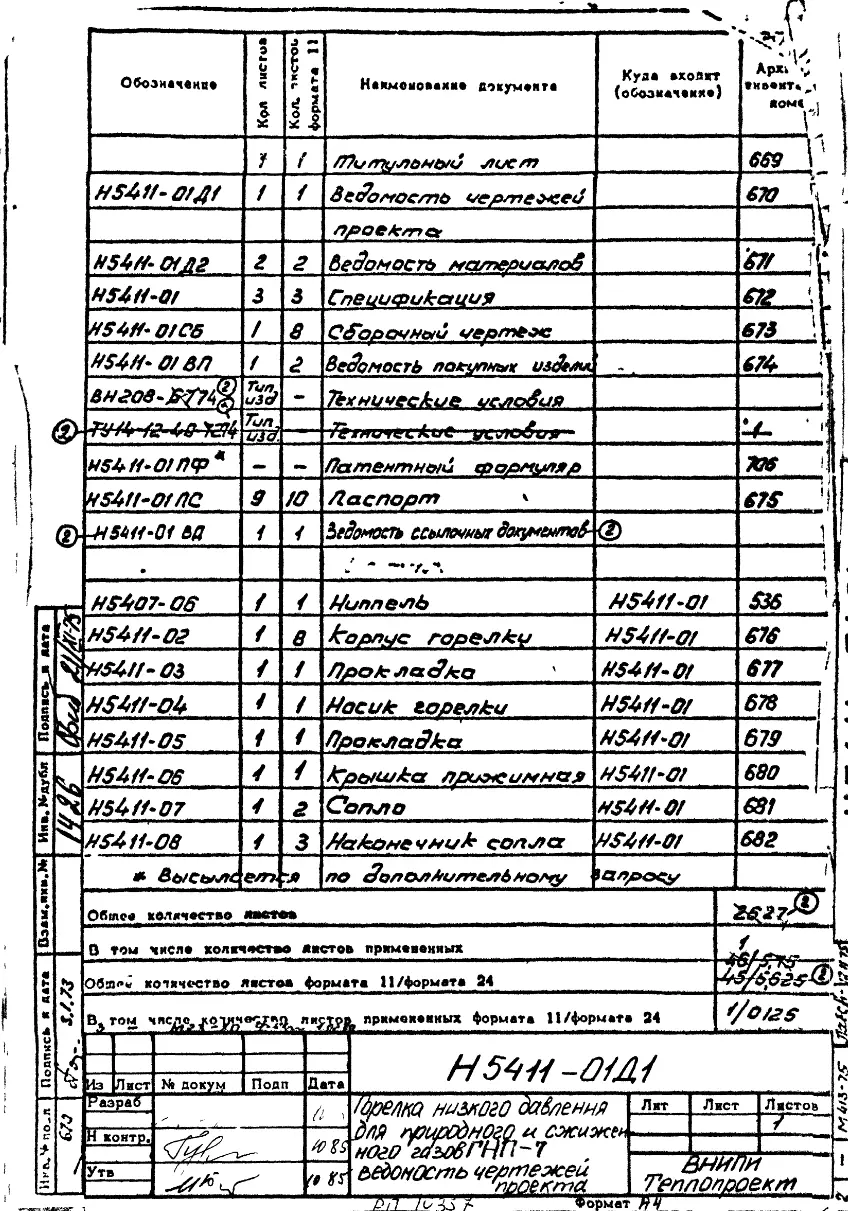 Обозначение Кол листов Кол. листов формата 11 Наименование документа Куда входит (обозначение)
1 1 Титульный лист 669
Н5411-01Д1 1 1 Ведомость чертежей 670
проекта
Н5411-01Д2 2 2 Ведомость материалов 671
Н5411-01 3 3 Спецификация 672
Н5411-01СБ 1 8 Сборочный чертеж 673
Н5411-01ВП 1 2 Ведомость покупных изделий 674
ВН208- 74 ② Тип. изд – Технические условия
② ТУ14-12-40 Тип. изд. — Технические условия 1
Н5411-01ПФ * – – Патентный формуляр 706
Н5411-01ПС 9 10 Паспорт 675
② Н5411-01 ВД 1 1 Ведомость ссылочных документов ②
Н5407-06 1 1 Ниппель Н5411-01 536
Н5411-02 1 8 Корпус горелки Н5411-01 676
Н5411-03 1 1 Прокладка Н5411-01 677
Н5411-04 1 1 Носик горелки Н5411-01 678
Н5411-05 1 1 Прокладка Н5411-01 679
Н5411-06 1 1 Крышка прижимная Н5411-01 680
Н5411-07 1 2 Сопло Н5411-01 681
Н5411-08 1 3 Наконечник сопла Н5411-01 682
* Высылается по дополнительному запросу
Общее количество листов 26 27 ②
В том числе количество листов примененных 1
Общее количество листов формата 11/формата 24 46/5,75 45/5,625 ②
В том числе количество листов примененных формата 11/формата 24 1/0125
Подпись и дата
Инв. №дубл 1426
Взам.инв.№
Подпись и дата 3.1.73
Инв. № подл 673
Н5411-01Д1
Из Лист № докум Подп Дата
Разраб
Н контр. 10 85
Утв 10 85
Горелка низкого давления
для природного и сжижен
ного газов ГНП-7
ведомость чертежей
проекта
Лит Лист Листов
1
ВНИПИ
Теплопроект
Формат А4